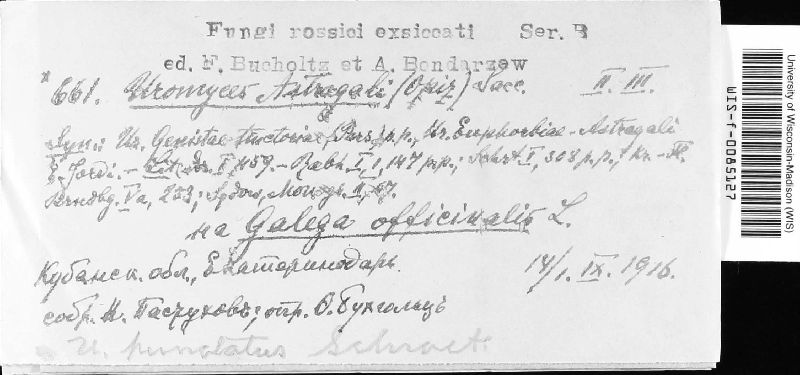 Fungi rossici exsiccati Ser. B
ed. F. Bucholtz et A. Bondarzew
*661. Uromyces Astragali (Opiz) Sacc. II. III.
Syn.: Ur. Genistae tinctoriae (Pers.) p.p., Ur. Euphorbiae-Astragali
Jordi. - I, 459. - Rabh. I, 1, 147 p.p.; Schrt. I, 308 p.p.; Kr.-Fl.
Brndbg. Va, 253; Sydow, Monogr.
на Galega officinalis L.
Кубанск. обл., Екатеринодарь. 14/1. IX. 1916.
собр. Н. Пастуховъ; опр. Ѳ. Бухгольцъ
U. punctatus Schroet.
University of Wisconsin-Madison (WIS)
WIS-f-0085127